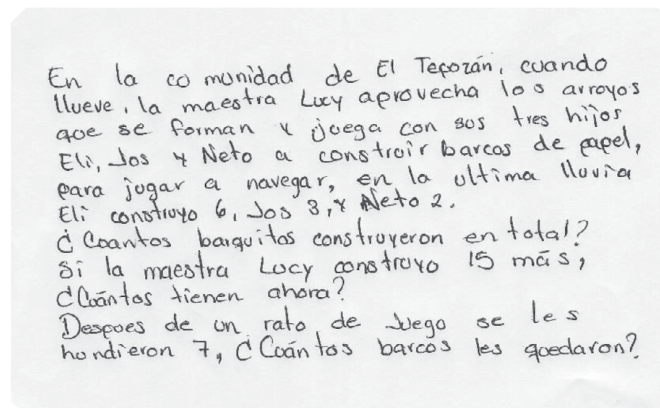 En la comunidad de El Tepozán, cuando
llueve, la maestra Lucy aprovecha los arroyos
que se forman y juega con sus tres hijos
Eli, Jos y Neto a construir barcos de papel,
para jugar a navegar, en la ultima lluvia
Eli construyo 6, Jos 3, y Neto 2.
¿Cuantos barquitos construyeron en total?
Si la maestra Lucy construyo 15 más,
¿Cuántos tienen ahora?
Despues de un rato de Juego se les
hundieron 7, ¿Cuántos barcos les quedaron?